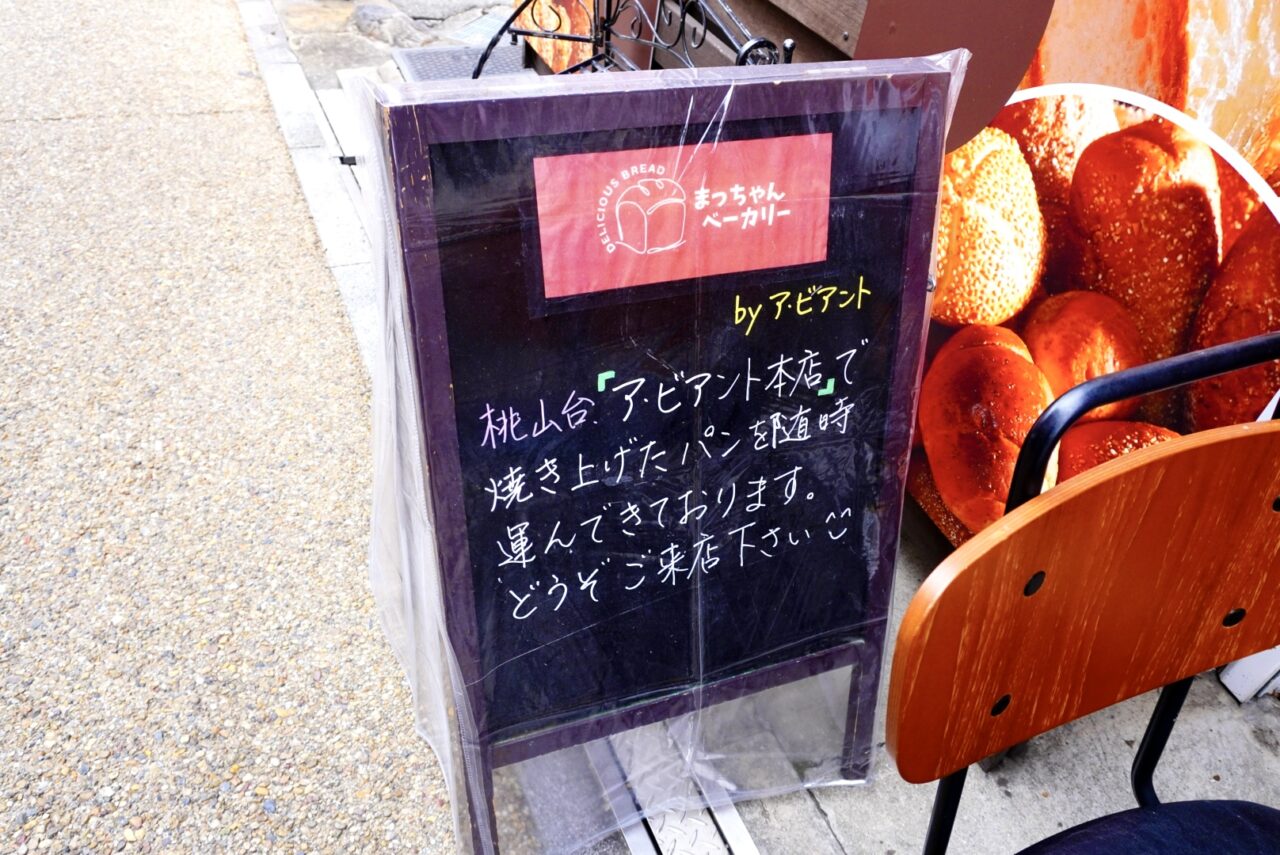 DELICIOUS BREAD
まっちゃん
ベーカリー
by ア・ビアント
桃山台、「ア・ビアント本店」で
焼き上げたパンを随時
運んできております。
どうぞご来店下さい